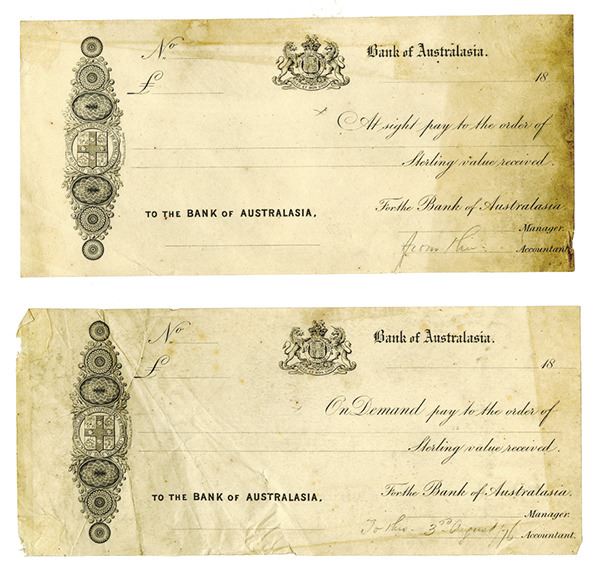 No
Bank of Australasia.
£
18
At sight pay to the order of
Sterling value received.
TO THE BANK OF AUSTRALASIA,
For the Bank of Australasia
Manager.
Accountant.
No
Bank of Australasia.
£
18
On Demand pay to the order of
Sterling value received.
TO THE BANK OF AUSTRALASIA,
For the Bank of Australasia.
Manager.
3rd August 76
Accountant.